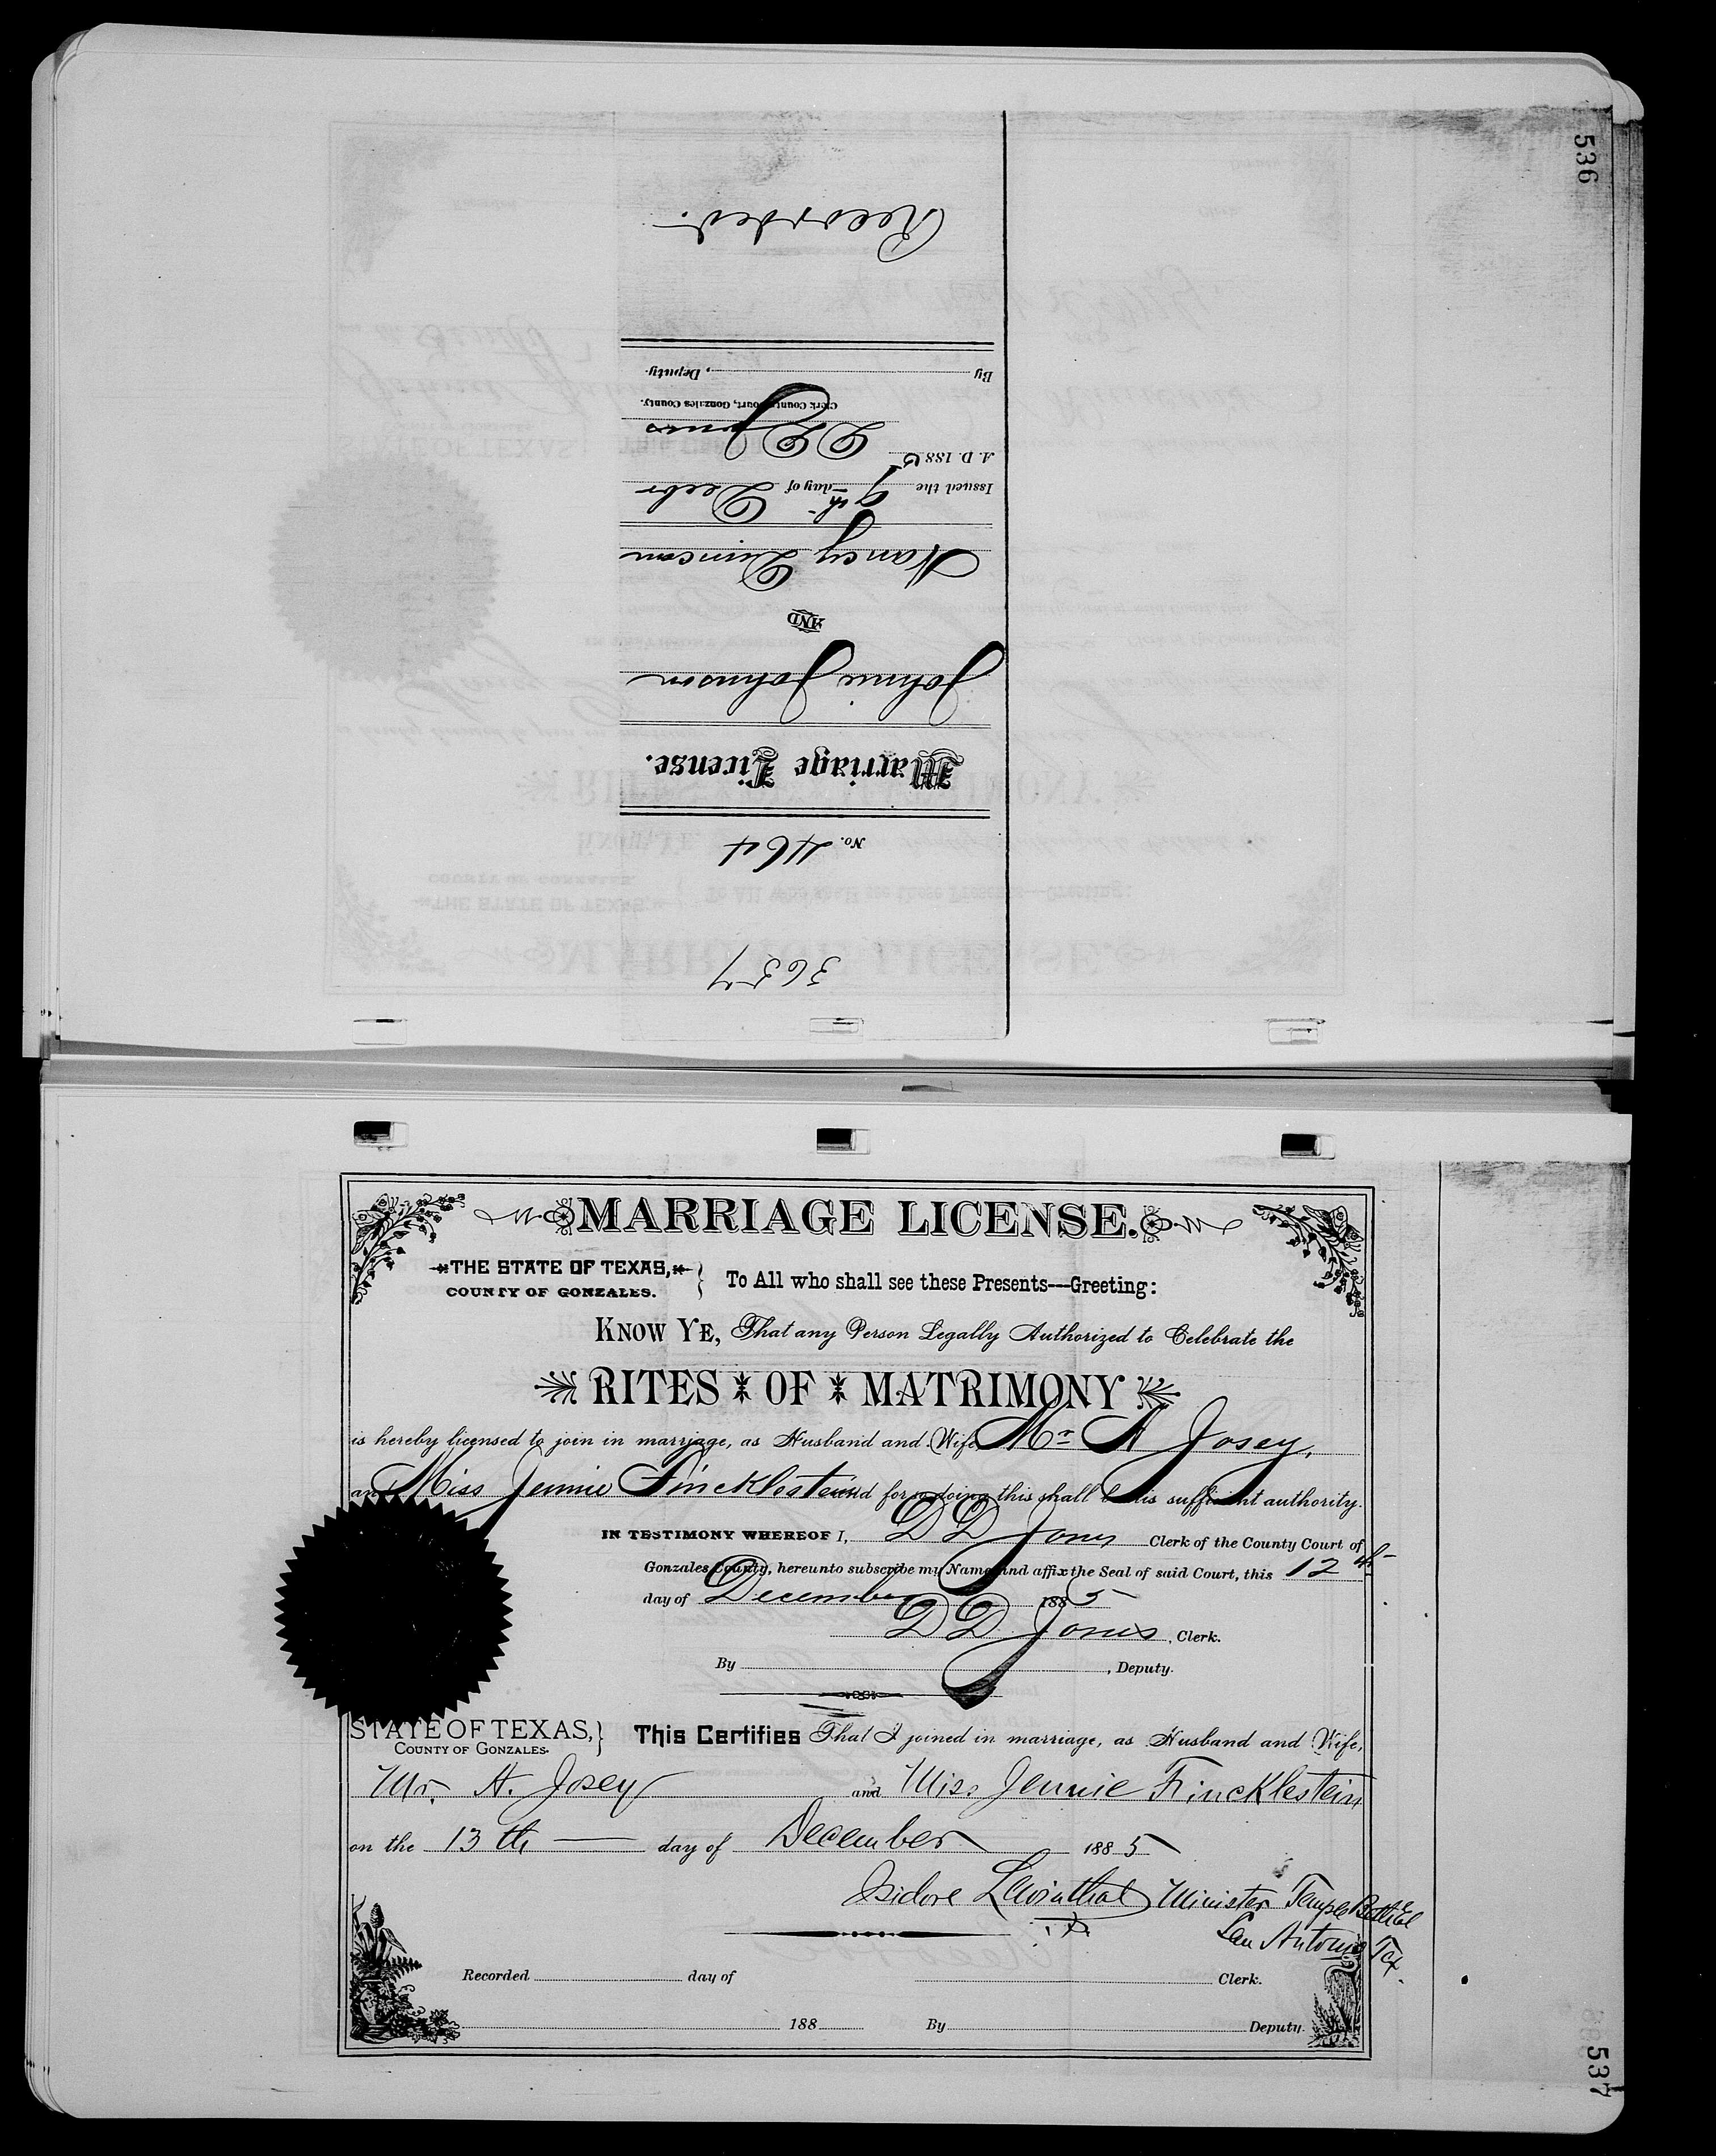 536
3657
No. 464
Marriage License.
Johnie Johnson
AND
Nancy Duncan
Issued the 9th day of Decbr
A. D. 1885
D D Jones
Clerk County Court, Gonzales County.
By , Deputy.
Recorded.
MARRIAGE LICENSE.
THE STATE OF TEXAS, } To All who shall see these Presents---Greeting:
COUNTY OF GONZALES.
KNOW YE, That any Person Legally Authorized to Celebrate the
RITES OF MATRIMONY
is hereby licensed to join in marriage, as Husband and Wife Mr A Josey,
and Miss Jennie Fincklestein and for so doing this shall be his sufficient authority.
IN TESTIMONY WHEREOF I, D D Jones Clerk of the County Court of
Gonzales County, hereunto subscribe my Name and affix the Seal of said Court, this 12th
day of December 1885
D D Jones, Clerk.
By , Deputy.
STATE OF TEXAS, } This Certifies That I joined in marriage, as Husband and Wife,
COUNTY OF GONZALES.
Mr. A. Josey and Miss Jennie Fincklestein
on the 13th day of December 1885
Isidore Lewinthal Minister Temple Bethel
San Antonio Tex.
Recorded day of Clerk.
188 By Deputy.
537